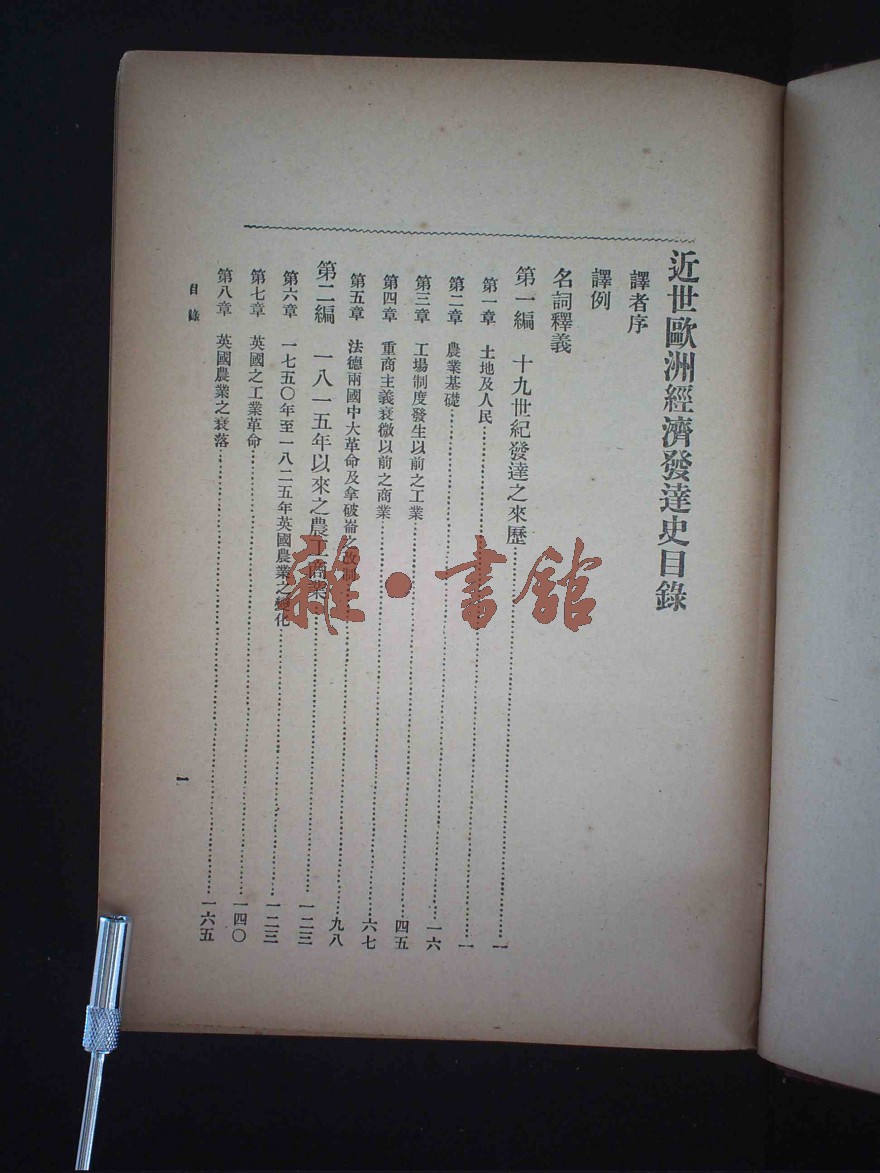 近世歐洲經濟發達史目錄
譯者序
譯例
名詞釋義
第一編 十九世紀發達之來歷……一
第一章 土地及人民……一
第二章 農業基礎……一六
第三章 工場制度發生以前之工業……四五
第四章 重商主義衰微以前之商業……六七
第五章 法德兩國中大革命及拿破崙之改制……九八
第二編 一八一五年以來之農工商業……一二三
第六章 一七五〇年至一八二五年英國農業之變化……一二三
第七章 英國之工業革命……一四〇
第八章 英國農業之衰落……一六五
目錄
一
雜·書館